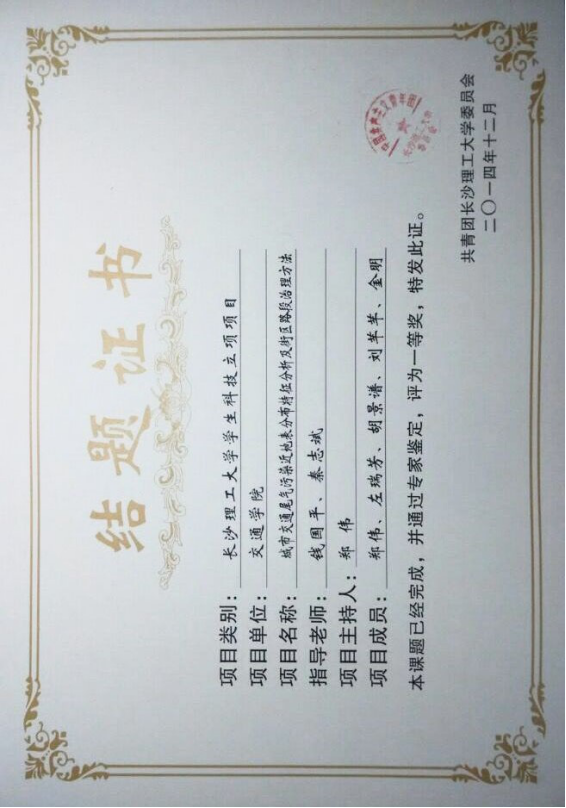 结题证书
项目类别：长沙理工大学学生科技立项项目
项目单位：交通学院
项目名称：城市交通尾气污染近地表分布特征分析及街区路段治理方法
指导老师：钱国平、秦志斌
项目主持人：郑伟
项目成员：郑伟、左瑞芳、胡景谱、刘芊芊、金明
本课题已经完成，并通过专家鉴定，评为一等奖，特发此证。
共青团长沙理工大学委员会
二〇一四年十二月